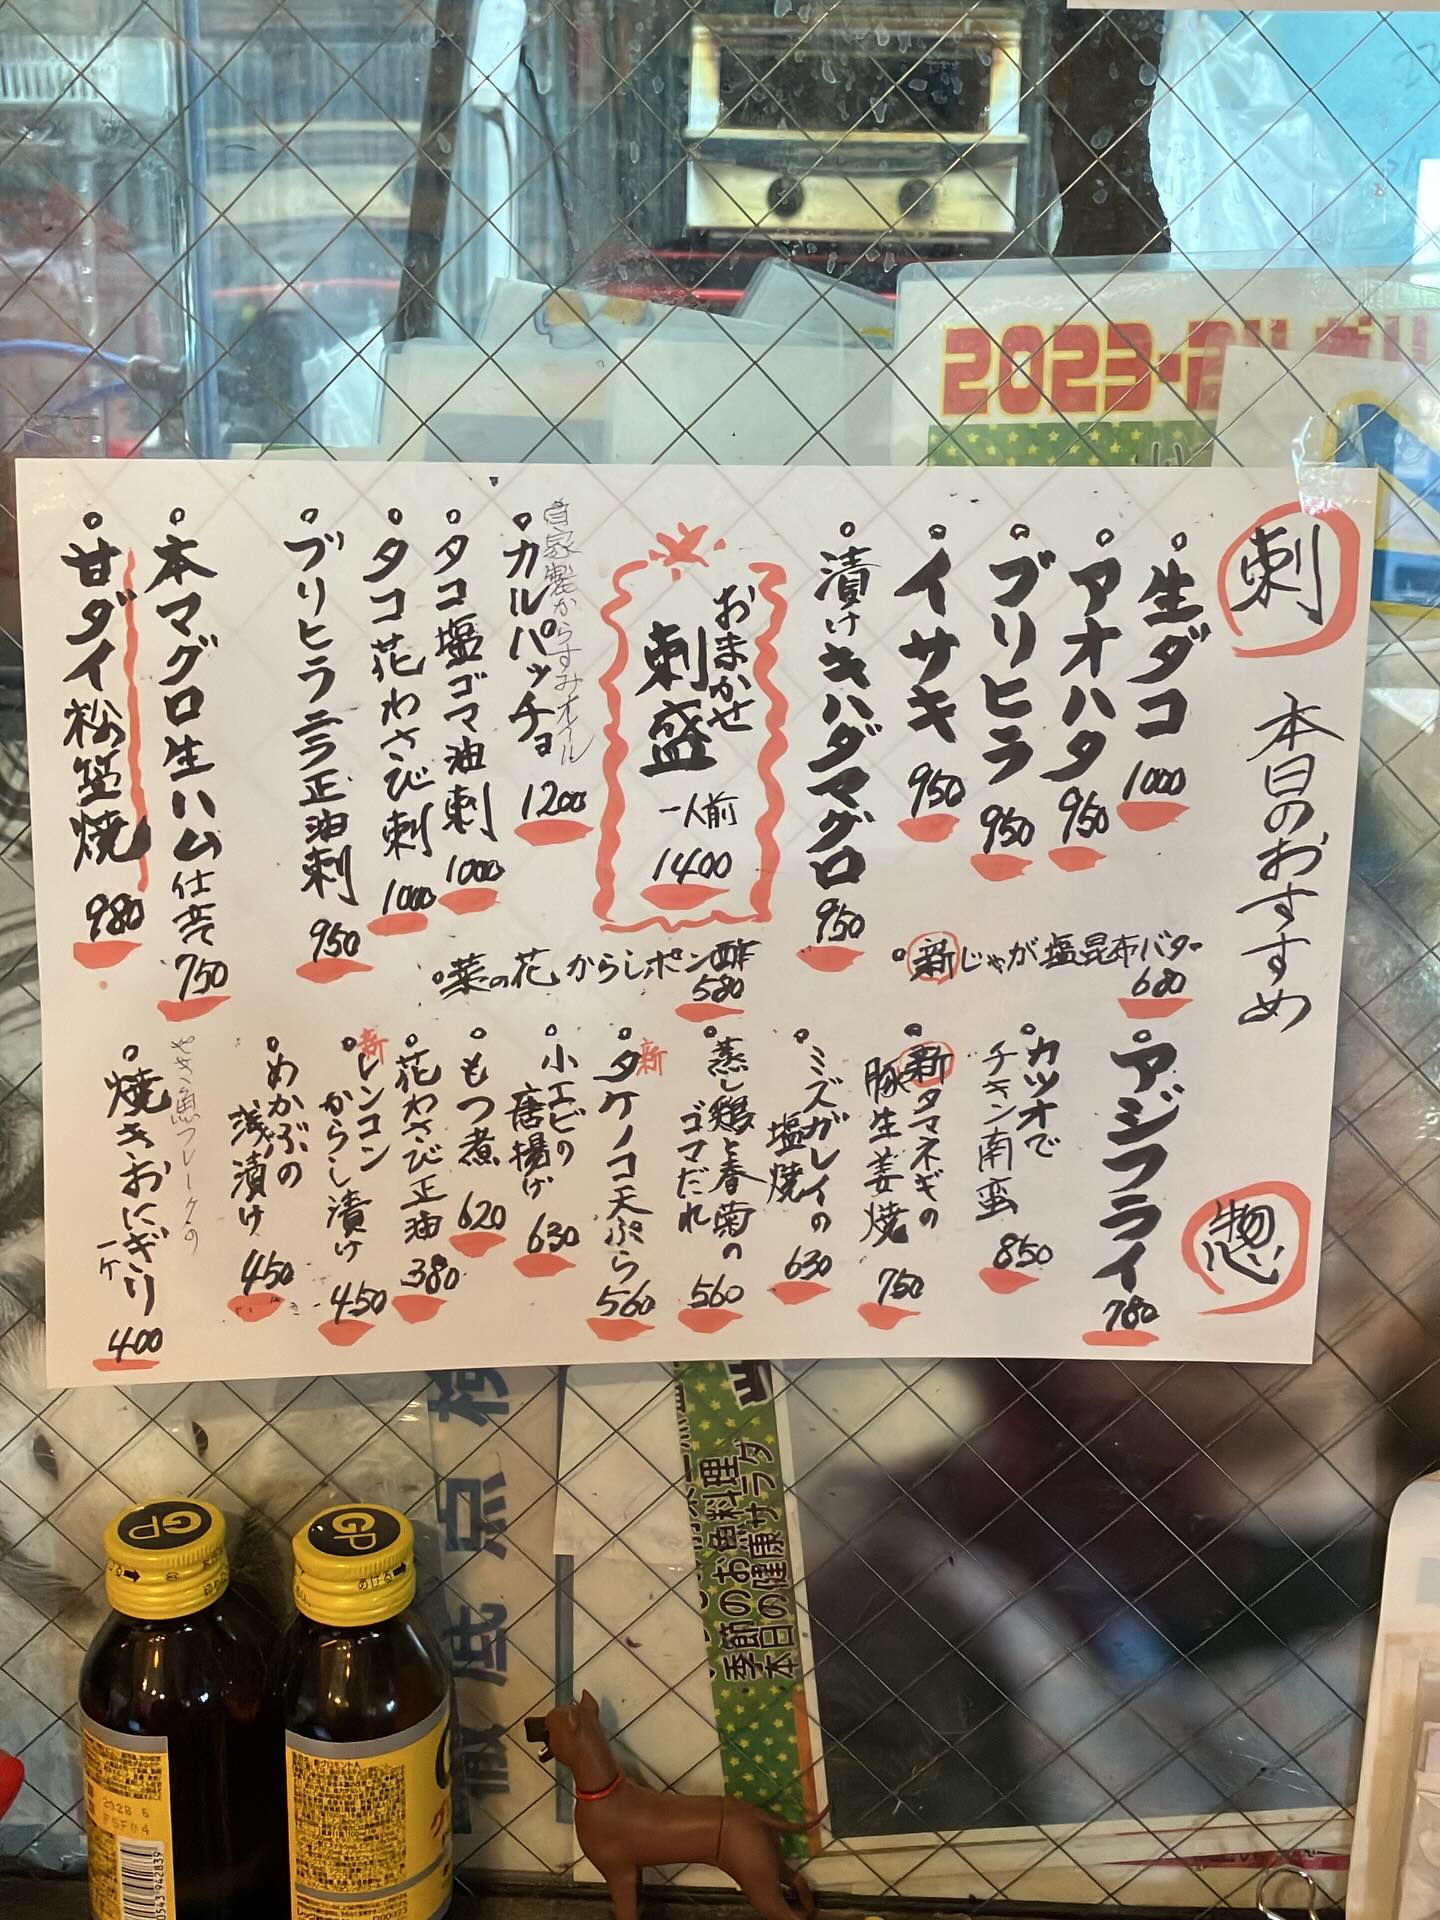 刺
本日のおすすめ
惣
°生ダコ
1000
°アオハタ
950
°ブリヒラ
950
°イサキ
950
°漬けキハダマグロ
950
おまかせ
刺盛
一人前
1400
自家製からすみオイル
°カルパッチョ
1200
°タコ塩ゴマ油刺
1000
°タコ花わさび刺
1000
°ブリヒラニラ正油刺
950
°本マグロ生ハム仕立て
750
°甘ダイ松笠焼
980
°新じゃが塩昆布バター
680
°菜の花からしポン酢
580
°アジフライ
780
°カツオで
チキン南蛮
850
°新タマネギの
豚生姜焼
750
°ミズガレイの
塩焼
630
°蒸し鶏と春菊の
ゴマだれ
560
新
°タケノコ天ぷら
560
°小エビの
唐揚げ
630
°もつ煮
620
°花わさび正油
380
新
°レンコン
からし漬け
450
°めかぶの
浅漬け
450
魚フレークの
°焼きおにぎり
一ケ
400
2023-
季節のお魚料理
本日の健康サラダ
徹底点検
GP
GP